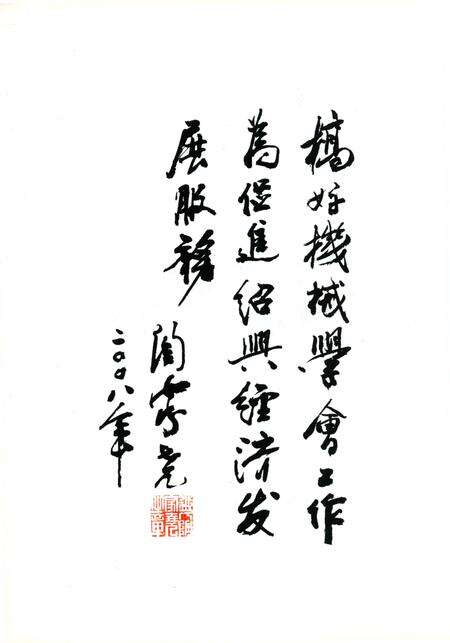 搞好機械學會工作
為促進紹興經济发
展服務
二〇〇八年